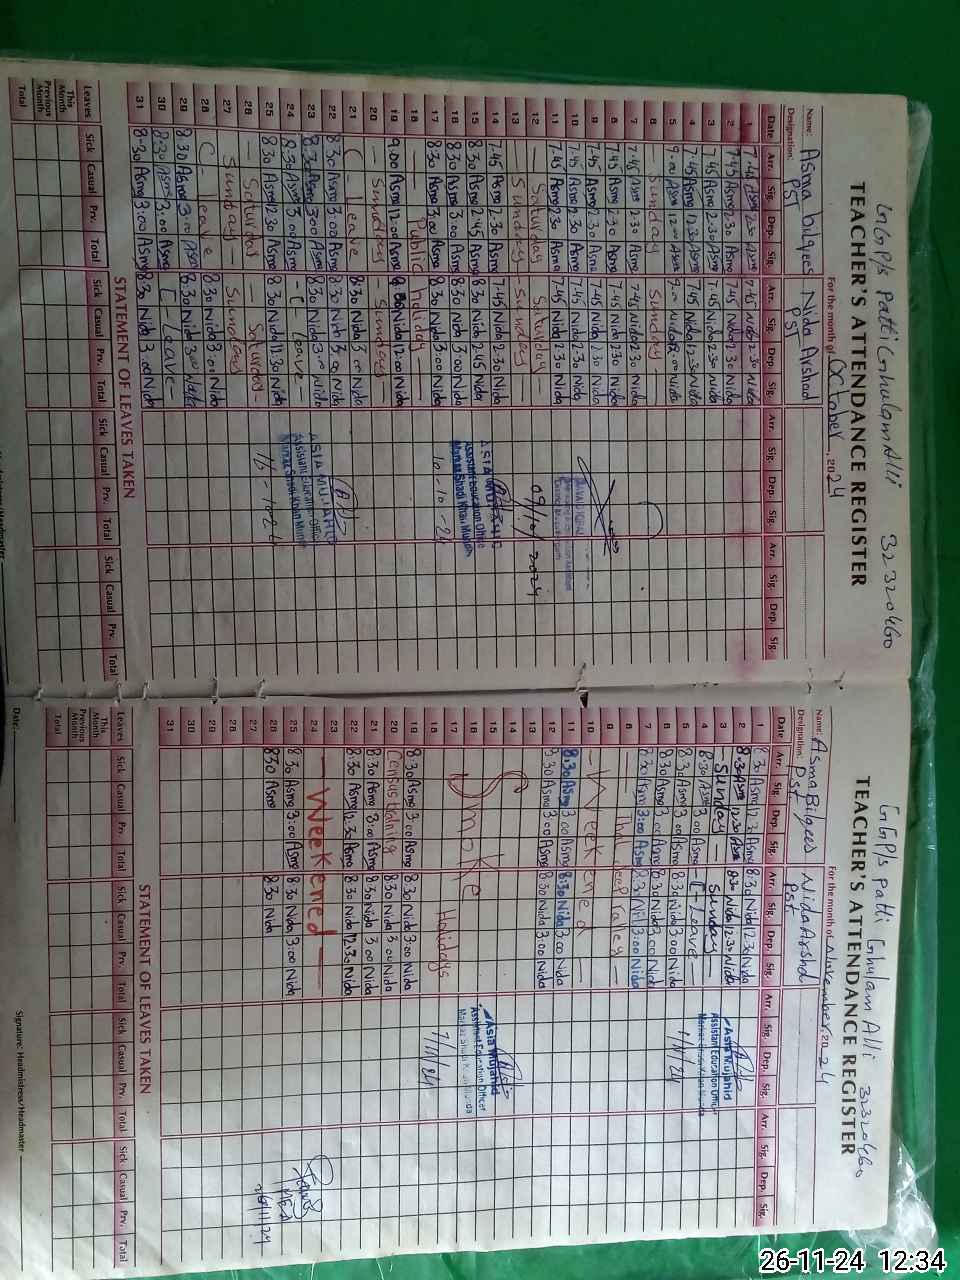 GGP/s Patti Ghulam Alli 32320460
TEACHER'S ATTENDANCE REGISTER
For the month of October, 2024
Name: Asma bilqees Nida Arshad
Designation: PST PST
Date Arr. Sig. Dep. Sig. Arr. Sig. Dep. Sig. Arr. Sig. Dep. Sig. Arr. Sig. Dep. Sig.
1 7.45 Asma 2.30 Asma 7.45 Nida 2.30 Nida
2 7.45 Asma 2.30 Asma 7.45 Nida 2.30 Nida
3 7.45 Asma 2.30 Asma 7.45 Nida 2.30 Nida
4 7.45 Asma 12.30 Asma 7.45 Nida 12.30 Nida
5 9.00 Asma 12.00 Asma 9.00 Nida 12.00 Nida
6 - Sunday - Sunday -
7 7.45 Asma 2.30 Asma 7.45 Nida 2.30 Nida
8 7.45 Asma 2.30 Asma 7.45 Nida 2.30 Nida
9 7.45 Asma 2.30 Asma 7.45 Nida 2.30 Nida
10 7.45 Asma 2.30 Asma 7.45 Nida 2.30 Nida
11 7.45 Asma 2.30 Asma 7.45 Nida 2.30 Nida
12 - Saturday - Saturday
13 - Sunday - Sunday -
09/10/2024
14 7.45 Asma 2.30 Asma 7.45 Nida 2.30 Nida
15 8.30 Asma 2.45 Asma 8.30 Nida 2.45 Nida
16 8.30 Asma 3.00 Asma 8.30 Nida 3.00 Nida
17 8.30 Asma 3.00 Asma 8.30 Nida 3.00 Nida
ASIA MUJAHID
Assistant Education Officer
10-10-24
18 - Public holiday -
19 9.00 Asma 12.00 Asma Nida 12.00 Nida
20 - Sunday - Sunday -
21 C - Leave 8.30 Nida 3.00 Nida
22 8.30 Asma 3.00 Asma 8.30 Nida 3.00 Nida
23 8.30 Asma 3.00 Asma 8.30 Nida 3.00 Nida
24 8.30 Asma 3.00 Asma - C - Leave -
25 8.30 Asma 12.30 Asma 8.30 Nida 12.30 Nida
ASIA MUJAHID
Assistant Education Officer
26 - Saturday - Saturday -
27 Sunday - Sunday
28 C - Leave 8.30 Nida 3.00 Nida
29 8.30 Asma 3.00 Asma 8.30 Nida 3.00 Nida
30 8.30 Asma 3.00 Asma C - Leave -
31 8.30 Asma 3.00 Asma 8.30 Nida 3.00 Nida
STATEMENT OF LEAVES TAKEN
Leaves Sick Casual Prv. Total Sick Casual Prv. Total Sick Casual Prv. Total Sick Casual Prv. Total
This Month
Previous Month
Total
GGP/s Patti Ghulam Alli 32320460
TEACHER'S ATTENDANCE REGISTER
For the month of November 2024
Name: Asma Bilqees Nida Arshad
Designation: Pst Pst
Date Arr. Sig. Dep. Sig. Arr. Sig. Dep. Sig. Arr. Sig. Dep. Sig. Arr. Sig. Dep. Sig.
1 8.30 Asma 12.30 Asma 8.30 Nida 12.30 Nida
2 8.30 Asma 12.30 Asma 8.30 Nida 12.30 Nida
3 - Sunday - Sunday -
4 8.30 Asma 3.00 Asma - C - Leave -
Asia Mujahid
Assistant Education Officer
1/11/24
5 8.30 Asma 3.00 Asma 8.30 Nida 3.00 Nida
6 8.30 Asma 3.00 Asma 8.30 Nida 3.00 Nida
7 8.30 Asma 3.00 Asma 8.30 Nida 3.00 Nida
8 Thal Jeep ralley -
9
10 - Weekened -
11 8.30 Asma 3.00 Asma 8.30 Nida 3.00 Nida
12 8.30 Asma 3.00 Asma 8.30 Nida 3.00 Nida
13
14
15
16
17
18
Smoke Holidays
Asia Mujahid
Assistant Education Officer
7/11/24
19 8.30 Asma 3.00 Asma 8.30 Nida 3.00 Nida
20 Census training 8.30 Nida 3.00 Nida
21 8.30 Asma 3.00 Asma 8.30 Nida 3.00 Nida
22 8.30 Asma 12.30 Asma 8.30 Nida 12.30 Nida
23
24 - Weekened -
25 8.30 Asma 3.00 Asma 8.30 Nida 3.00 Nida
26 8.30 Asma 8.30 Nida
27
28
29
30
31
26/11/24
STATEMENT OF LEAVES TAKEN
Leaves Sick Casual Prv. Total Sick Casual Prv. Total Sick Casual Prv. Total Sick Casual Prv. Total
This Month
Previous Month
Total
Date: Signature: Headmistress/Headmaster
26-11-24 12:34